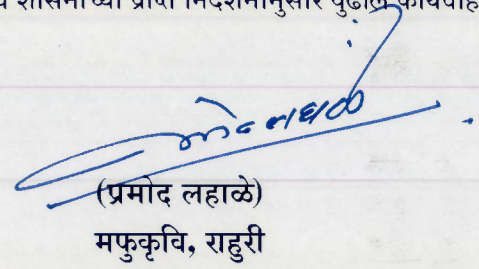 शासनाच्या प्राप्त निर्देशानुसार पुढील कार्यवाही
(प्रमोद लहाळे)
मफुकृवि, राहुरी